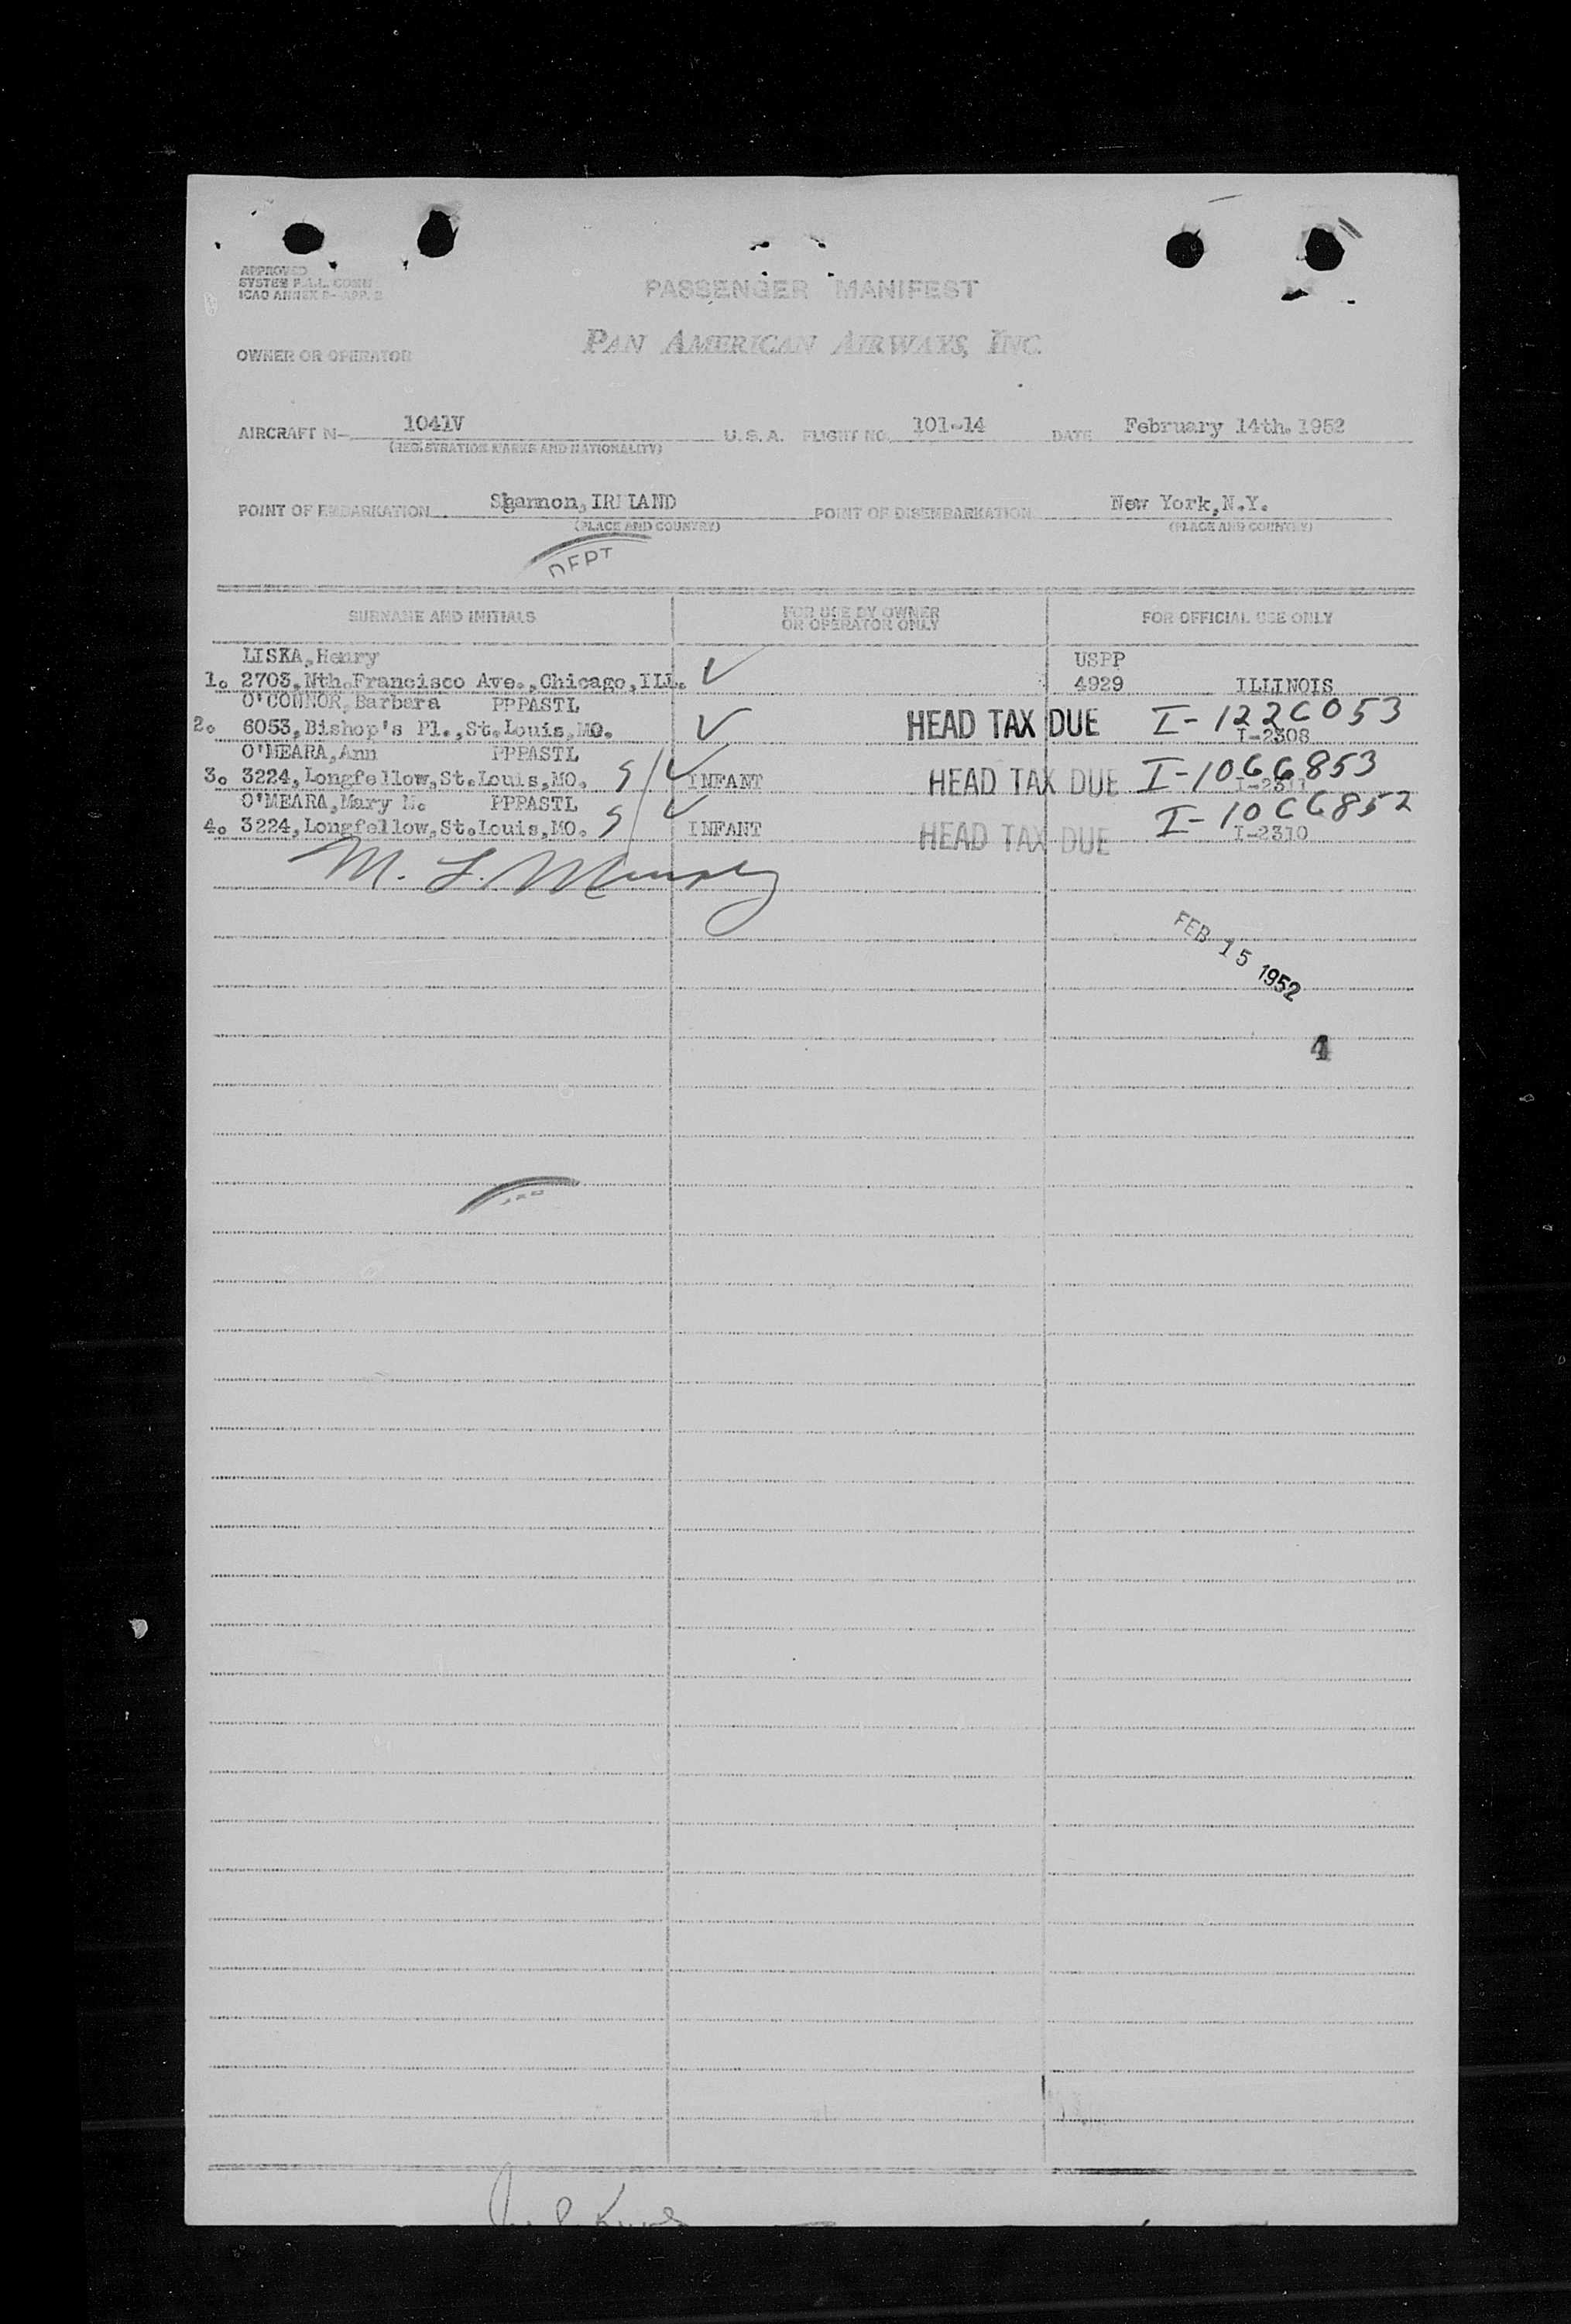 APPROVED
SYSTEM F.A.L. COMM
ICAO ANNEX 9-APP. 2
PASSENGER MANIFEST
OWNER OR OPERATOR PAN AMERICAN AIRWAYS, INC.
AIRCRAFT N- 1041V U. S. A. FLIGHT NO. 101-14 DATE February 14th. 1952
(REGISTRATION MARKS AND NATIONALITY)
POINT OF EMBARKATION Shannon, IRELAND POINT OF DISEMBARKATION New York, N.Y.
(PLACE AND COUNTRY) (PLACE AND COUNTRY)
DEPT
SURNAME AND INITIALS FOR USE BY OWNER OR OPERATOR ONLY FOR OFFICIAL USE ONLY
LISKA, Henry USPP
1. 2703, Nth. Francisco Ave., Chicago, ILL. 4929 ILLINOIS
O'CONNOR, Barbara PPPASTL HEAD TAX DUE I-1226053
2. 6053, Bishop's Pl., St. Louis, MO. I-2308
O'MEARA, Ann PPPASTL I-1066853
3. 3224, Longfellow, St. Louis, MO. INFANT HEAD TAX DUE I-2311
O'MEARA, Mary M. PPPASTL I-1066852
4. 3224, Longfellow, St. Louis, MO. INFANT HEAD TAX DUE I-2310
M. L. Murphy
FEB 15 1952
4